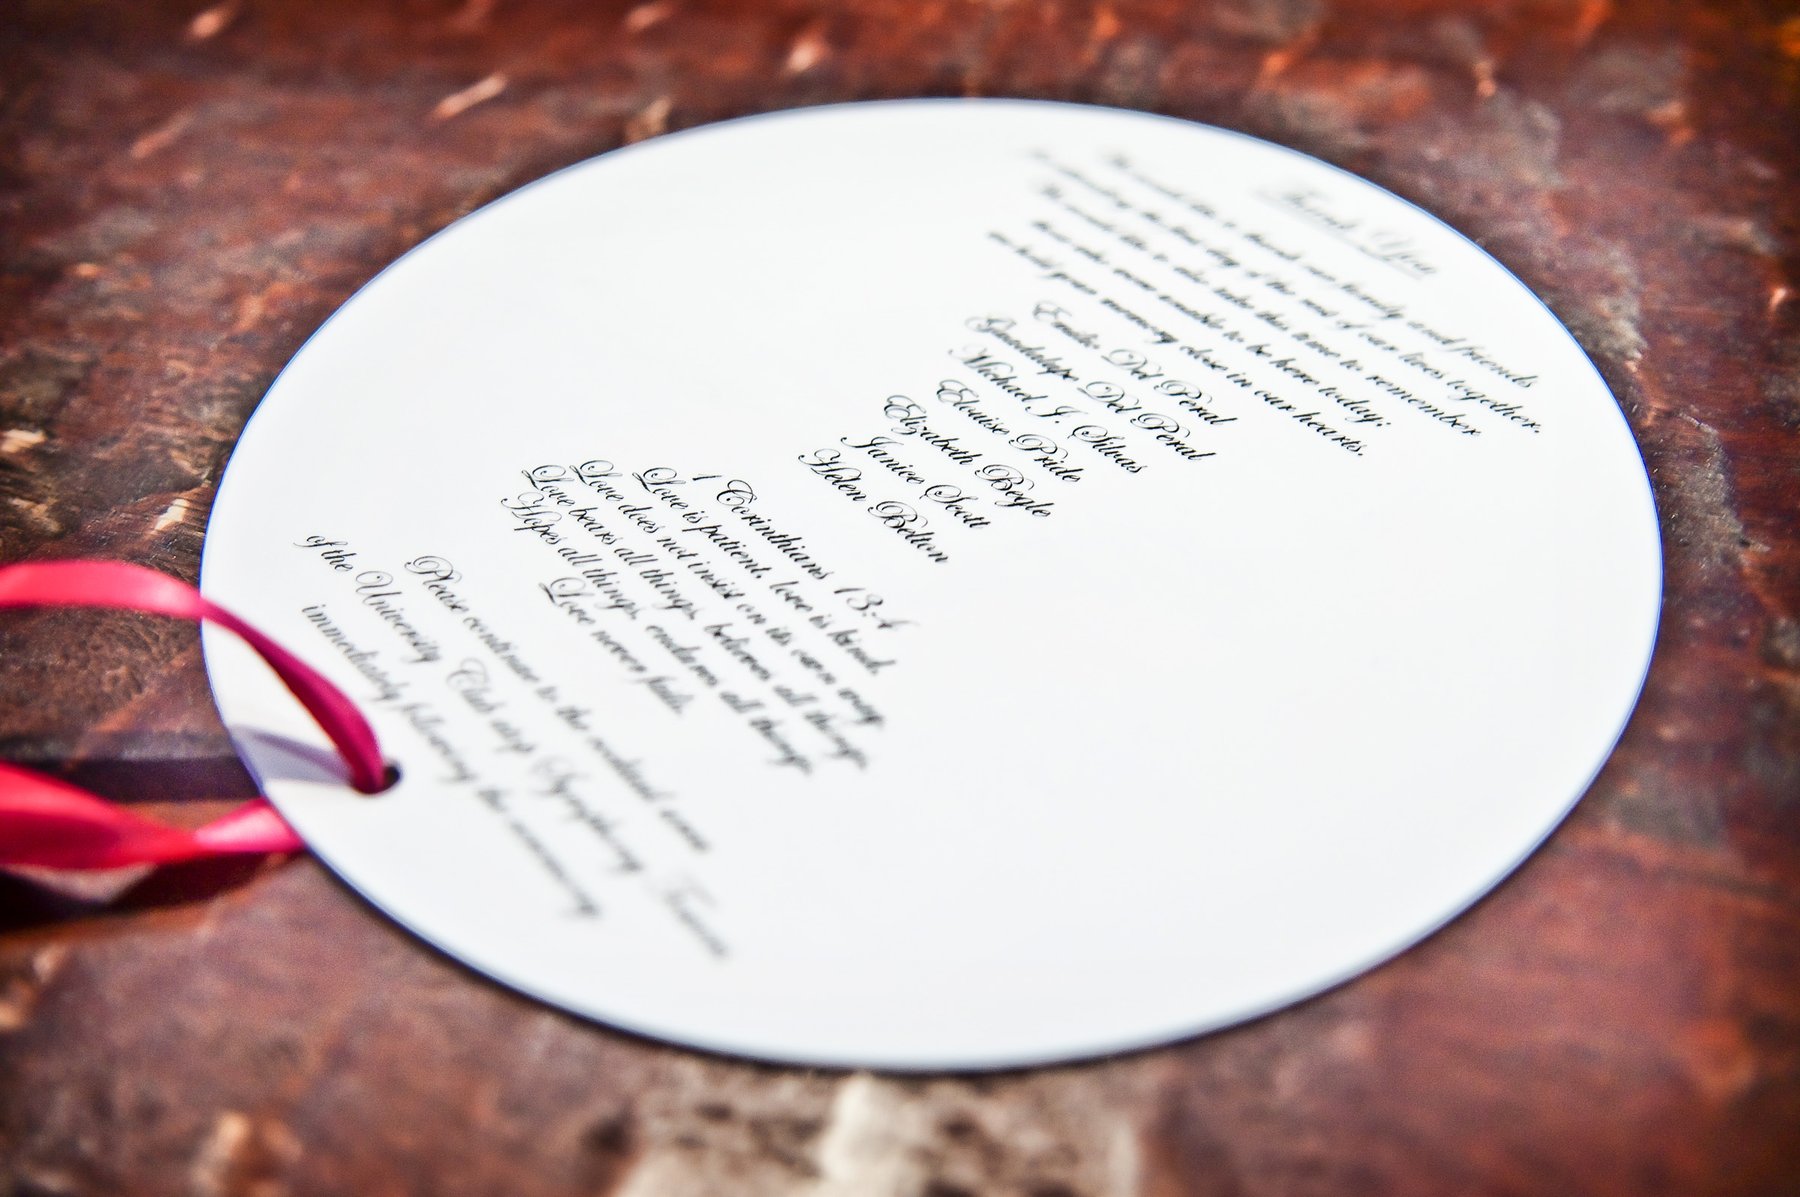 Thank You
We would like to thank our family and friends
for attending the first day of the rest of our lives together.
We would like to also take this time to remember
those who were unable to be here today;
we hold your memory close in our hearts.
Emila Del Peral
Guadalupe Del Peral
Michael J. Silvas
Elouise Pride
Elizabeth Begle
Janice Scott
Helen Belton
1 Corinthians 13:4
Love is patient, love is kind.
Love does not insist on its own way.
Love bears all things, believes all things,
Hopes all things, endures all things.
Love never fails.
Please continue to the cocktail area
of the University Club atop Symphony Towers
immediately following the ceremony